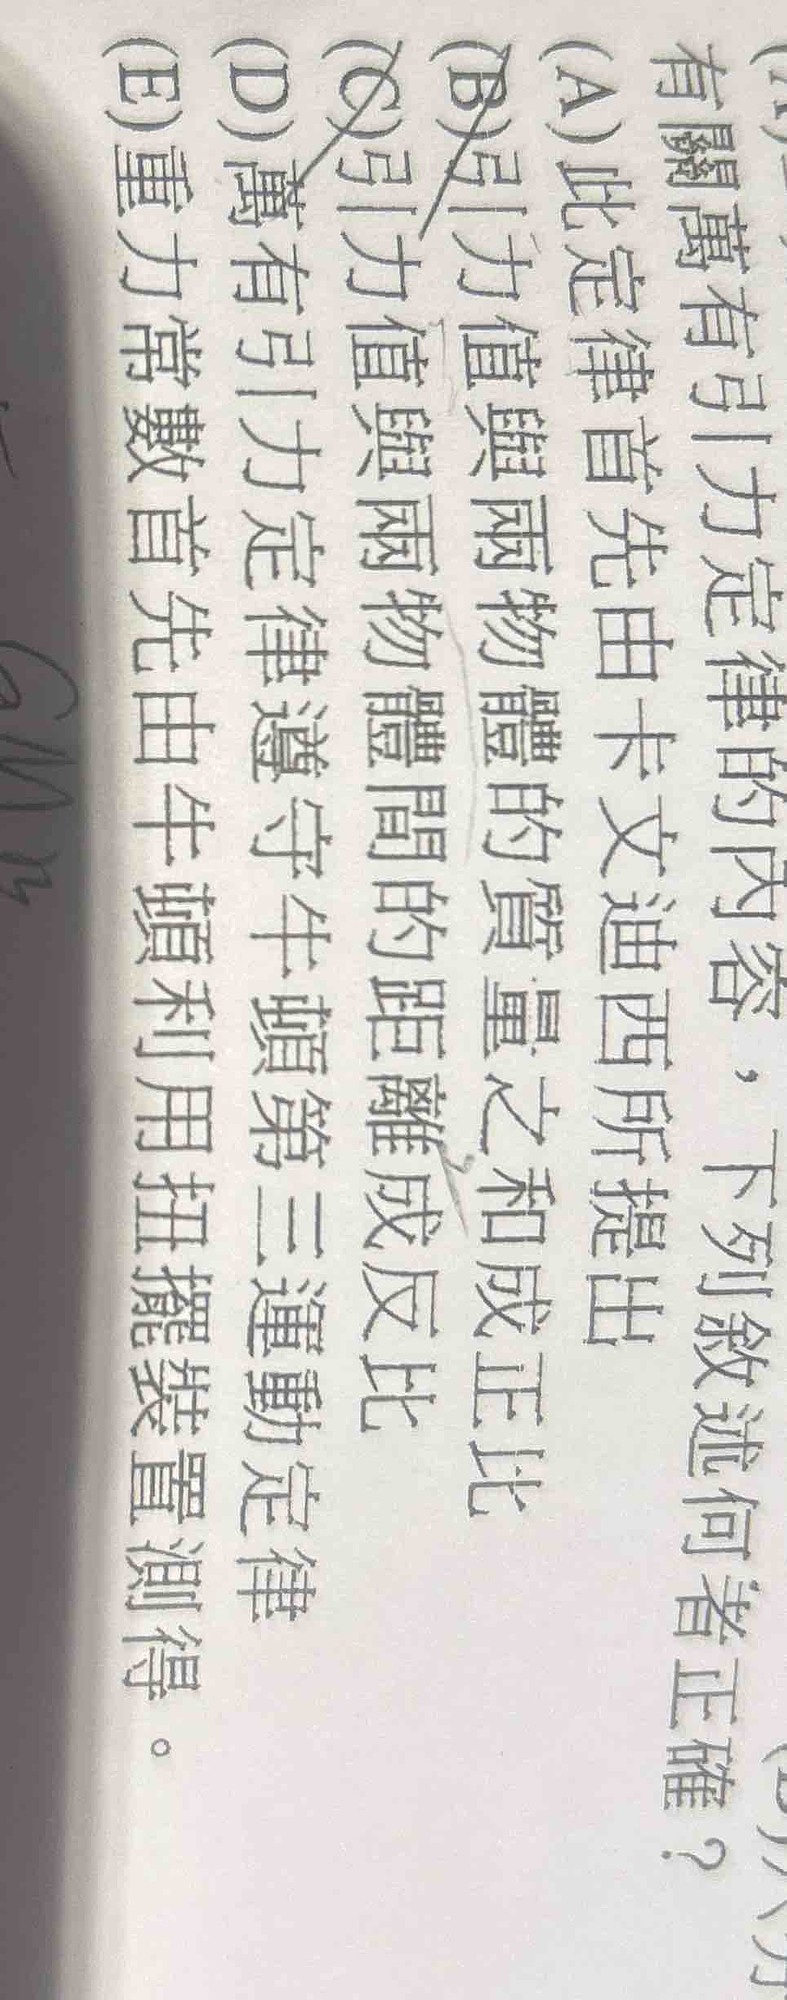 有關萬有引力定律的內容，下列敘述何者正確？
(A)此定律首先由卡文迪西所提出
(B)引力值與兩物體的質量之和成正比
(C)引力值與兩物體間的距離成反比
(D)萬有引力定律遵守牛頓第三運動定律
(E)重力常數首先由牛頓利用扭擺裝置測得。